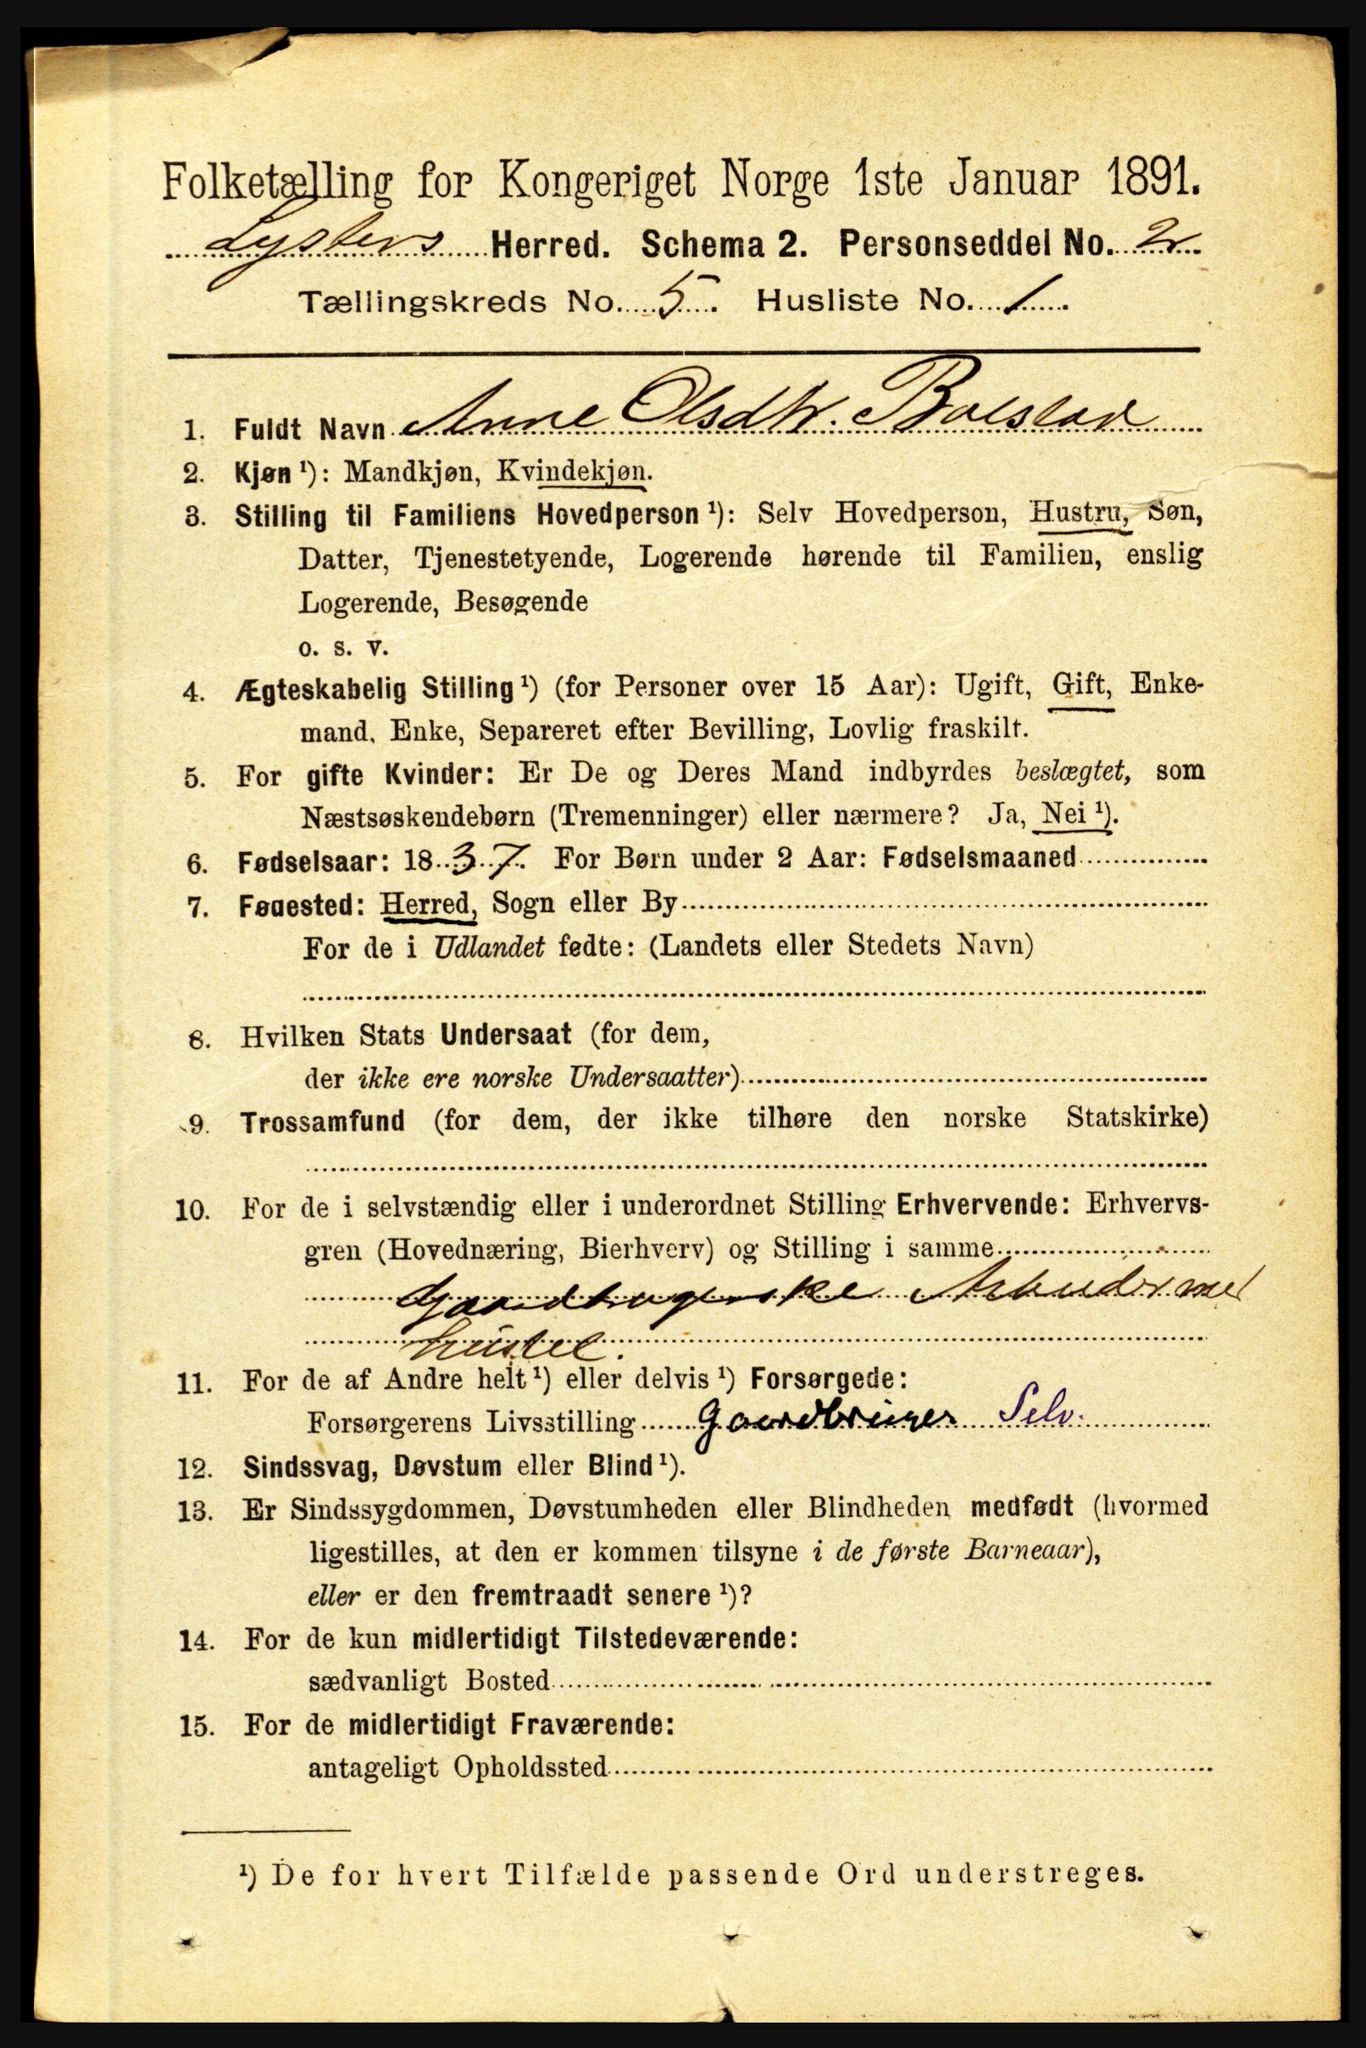 Folketælling for Kongeriget Norge 1ste Januar 1891.
Lysters Herred. Schema 2. Personseddel No. 2
Tællingskreds No. 5. Husliste No. 1.
1. Fuldt Navn Anne Olsdtr. Bolstad
2. Kjøn ¹): Mandkjøn, Kvindekjøn.
3. Stilling til Familiens Hovedperson ¹): Selv Hovedperson, Hustru, Søn,
Datter, Tjenestetyende, Logerende hørende til Familien, enslig
Logerende, Besøgende
o. s. v.
4. Ægteskabelig Stilling ¹) (for Personer over 15 Aar): Ugift, Gift, Enke-
mand, Enke, Separeret efter Bevilling, Lovlig fraskilt.
5. For gifte Kvinder: Er De og Deres Mand indbyrdes beslægtet, som
Næstsøskendebørn (Tremenninger) eller nærmere? Ja, Nei ¹).
6. Fødselsaar: 1837. For Børn under 2 Aar: Fødselsmaaned
7. Fødested: Herred, Sogn eller By
For de i Udlandet fødte: (Landets eller Stedets Navn)
8. Hvilken Stats Undersaat (for dem,
der ikke ere norske Undersaatter)
9. Trossamfund (for dem, der ikke tilhøre den norske Statskirke)
10. For de i selvstændig eller i underordnet Stilling Erhvervende: Erhvervs-
gren (Hovednæring, Bierhverv) og Stilling i samme
Arbeider med
11. For de af Andre helt ¹) eller delvis ¹) Forsørgede:
Forsørgerens Livsstilling Gaardbruger Selv.
12. Sindssvag, Døvstum eller Blind ¹).
13. Er Sindssygdommen, Døvstumheden eller Blindheden medfødt (hvormed
ligestilles, at den er kommen tilsyne i de første Barneaar),
eller er den fremtraadt senere ¹)?
14. For de kun midlertidigt Tilstedeværende:
sædvanligt Bosted
15. For de midlertidigt Fraværende:
antageligt Opholdssted
¹) De for hvert Tilfælde passende Ord understreges.